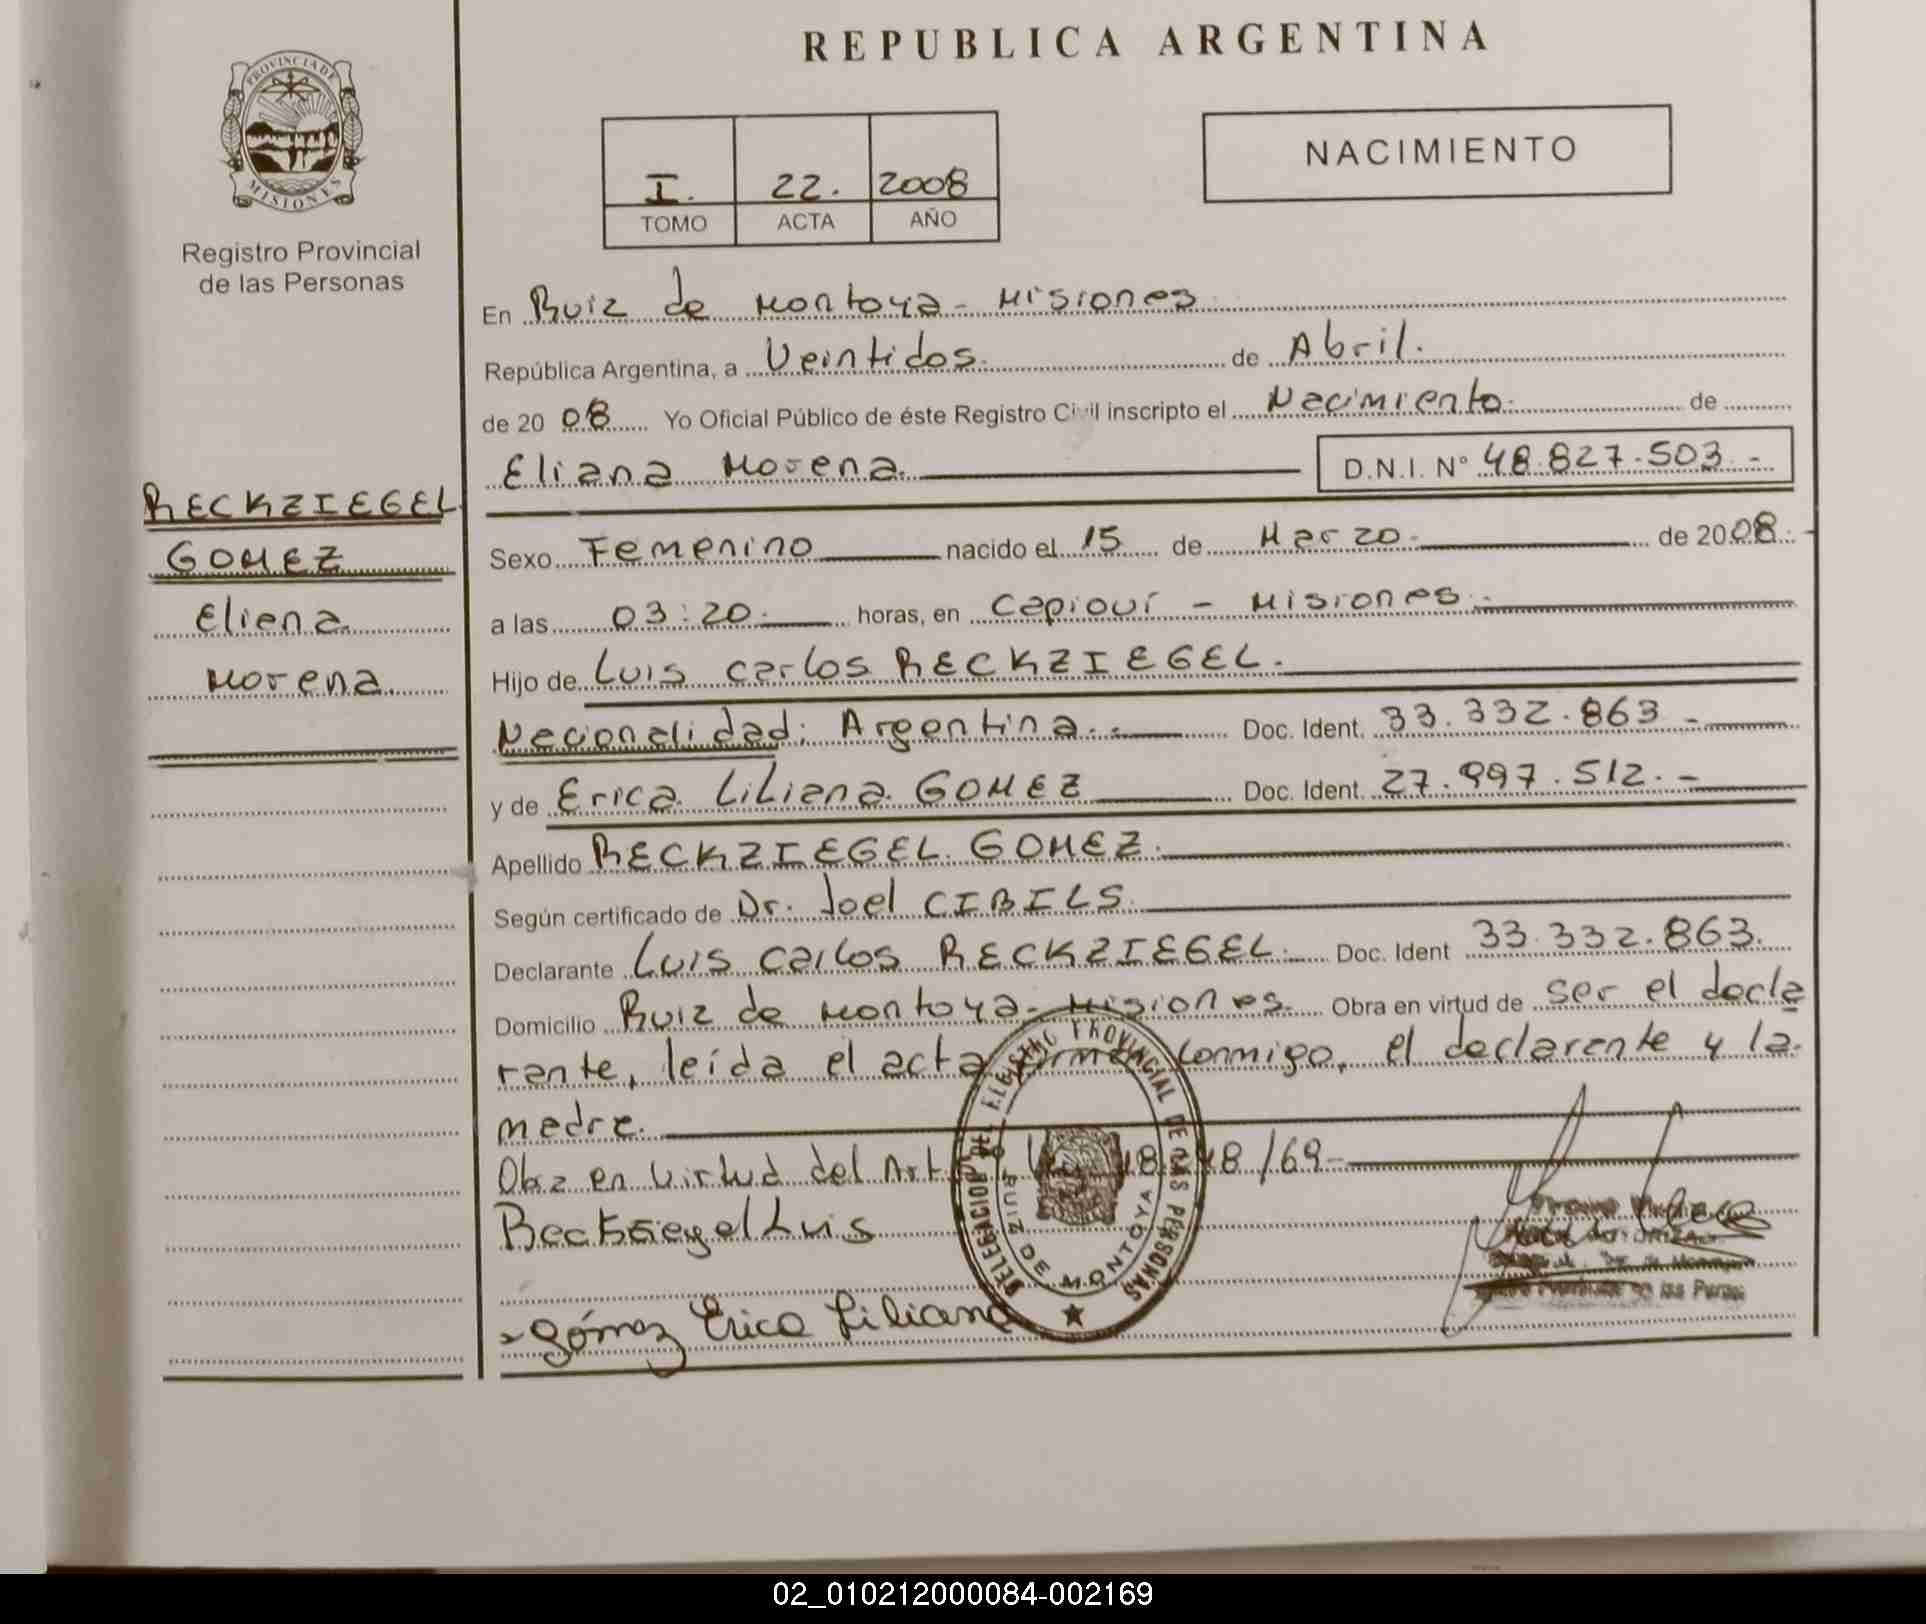 REPUBLICA ARGENTINA
PROVINCIA DE
MISIONES
Registro Provincial
de las Personas
I. 22. 2008
TOMO ACTA AÑO
NACIMIENTO
En Ruiz de Montoya - Misiones
República Argentina, a Veintidos. de Abril.
de 20 08 Yo Oficial Público de éste Registro Civil inscripto el Nacimiento de
Eliana Morena. D.N.I. N° 48.827.503.-
RECKZIEGEL
GOMEZ
Eliana
Morena
Sexo Femenino nacido el 15 de Marzo. de 20 08.-
a las 03:20. horas, en Capioví - Misiones.-
Hijo de Luis Carlos RECKZIEGEL.
Nacionalidad: Argentina.- Doc. Ident. 33.332.863.-
y de Erica Liliana GOMEZ Doc. Ident. 27.997.512.-
Apellido RECKZIEGEL GOMEZ.
Según certificado de Dr. Joel CIBILS.
Declarante Luis Carlos RECKZIEGEL. Doc. Ident 33.332.863.
Domicilio Ruiz de Montoya - Misiones. Obra en virtud de ser el decla
rante, leída el acta conmigo, el declarante y la
madre.
Obra en virtud del Art /69-
Reckziegel Luis
Gómez Erica Liliana
DELEGACION DEL REGISTRO PROVINCIAL DE LAS PERSONAS
RUIZ DE MONTOYA
02_010212000084-002169